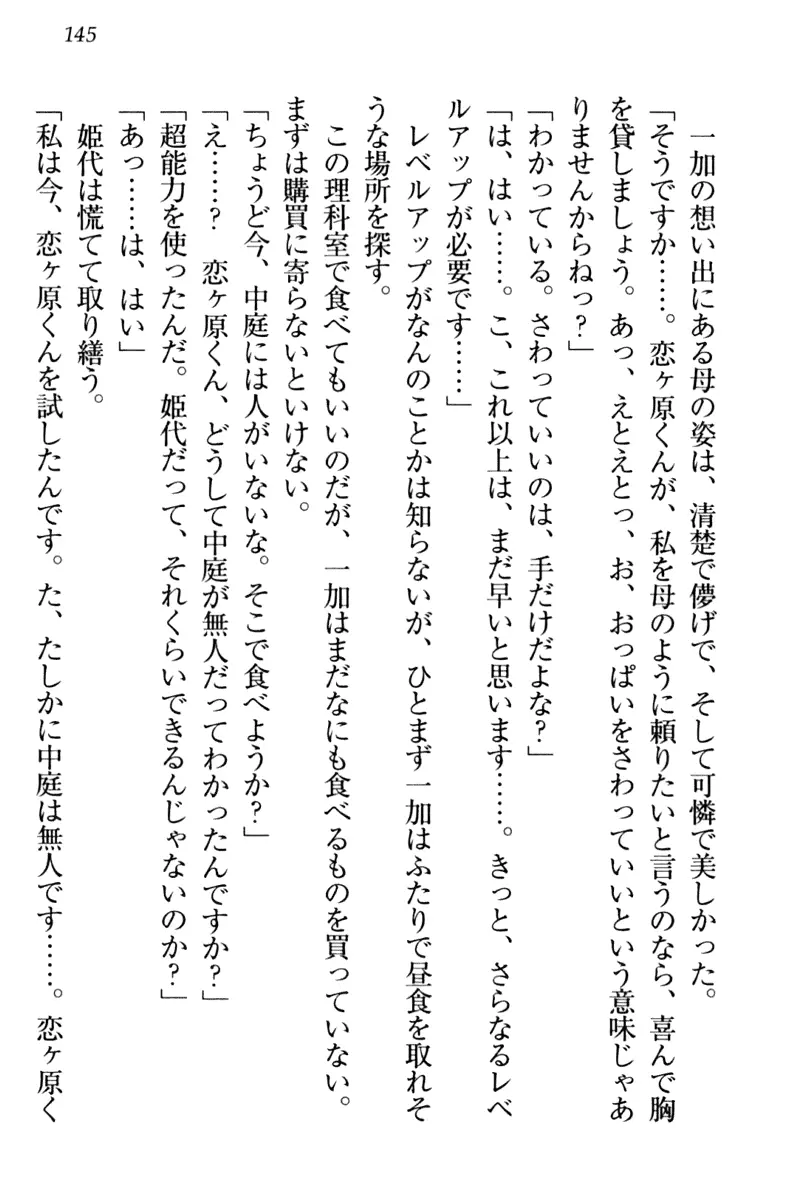 145
一加の想い出にある母の姿は、清楚で儚げで、そして可憐で美しかった。
「そうですか……。恋ヶ原くんが、私を母のように頼りたいと言うのなら、喜んで胸
を貸しましょう。あっ、えとえとっ、お、おっぱいをさわっていいという意味じゃあ
りませんからねっ?」
「わかっている。さわっていいのは、手だけだよな?」
「は、はい……。こ、これ以上は、まだ早いと思います……。きっと、さらなるレベ
ルアップが必要です……」
レベルアップがなんのことかは知らないが、ひとまず一加はふたりで昼食を取れそ
うな場所を探す。
この理科室で食べてもいいのだが、一加はまだなにも食べるものを買っていない。
まずは購買に寄らないといけない。
「ちょうど今、中庭には人がいないな。そこで食べようか?」
「え……? 恋ヶ原くん、どうして中庭が無人だってわかったんですか?」
「超能力を使ったんだ。姫代だって、それくらいできるんじゃないのか?」
「あっ……は、はい」
姫代は慌てて取り繕う。
「私は今、恋ヶ原くんを試したんです。た、たしかに中庭は無人です……。恋ヶ原く